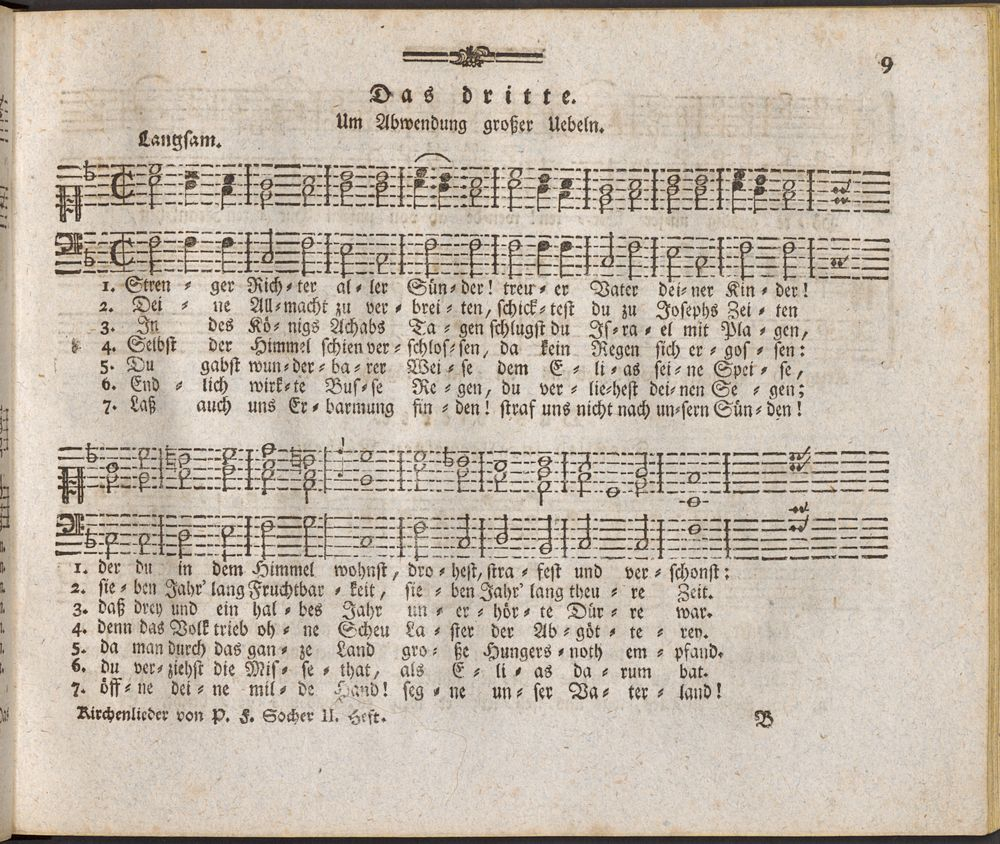 9
Das dritte.
Um Abwendung großer Uebeln.
Langsam.
1. Stren ⸗ ger Rich⸗ter al⸗ler Sün⸗der! treu⸗er Vater dei⸗ner Kin⸗der!
2. Dei ⸗ ne All⸗macht zu ver⸗brei⸗ten, schick⸗test du zu Josephs Zei⸗ten
3. In des Kö⸗nigs Achabs Ta⸗gen schlugst du Is⸗ra⸗el mit Pla⸗gen,
4. Selbst der Himmel schien ver⸗schlos⸗sen, da kein Regen sich er⸗gos⸗sen:
5. Du gabst wun⸗der⸗ba⸗rer Wei⸗se dem E⸗li⸗as sei⸗ne Spei⸗se,
6. End ⸗ lich wirk⸗te Bus⸗se Re⸗gen, du ver⸗lie⸗hest dei⸗nen Se⸗gen;
7. Laß auch uns Er⸗barmung fin⸗den! straf uns nicht nach un⸗sern Sün⸗den!
1. der du in dem Himmel wohnst, dro⸗hest, stra⸗fest und ver⸗schonst:
2. sie⸗ben Jahr' lang Fruchtbar⸗keit, sie⸗ben Jahr' lang theu⸗re Zeit.
3. daß drey und ein hal⸗bes Jahr un⸗er⸗hör⸗te Dür⸗re war.
4. denn das Volk trieb oh⸗ne Scheu La⸗ster der Ab⸗göt⸗te⸗rey.
5. da man durch das gan⸗ze Land gro⸗ße Hungers⸗noth em⸗pfand.
6. du ver⸗ziehst die Mis⸗se⸗that, als E⸗li⸗as da⸗rum bat.
7. öff⸗ne dei⸗ne mil⸗de Hand! seg⸗ne un⸗ser Va⸗ter⸗land!
Kirchenlieder von P. F. Socher II. Heft.
B